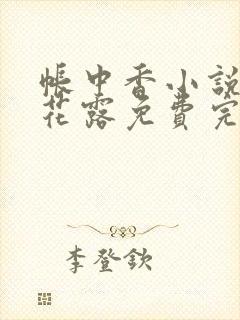 帳中香小說
花露免費完
李登欽